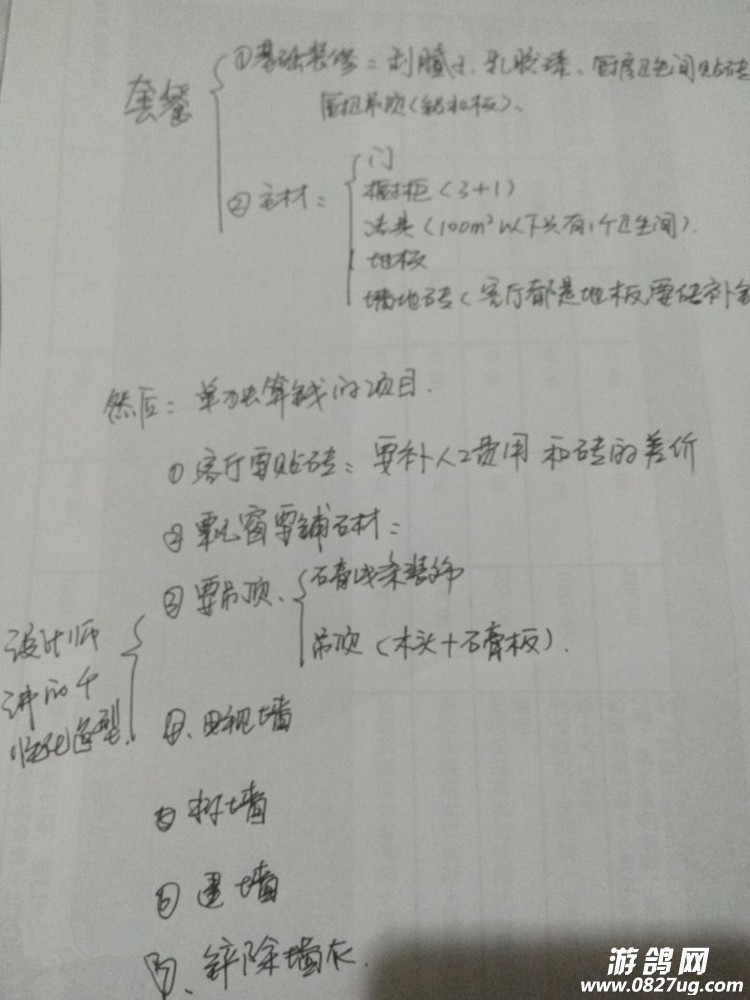 套餐
①基础装修：刮腻子、乳胶漆、厨房卫生间贴砖
吊顶(铝扣板)、
②主材：
门
橱柜(3+1)
洁具(100m²以下只有1个卫生间).
地板
墙地砖(客厅都是地板要砖补
然后：单独算钱的项目.
①客厅要贴砖：要补人工费用和砖的差价
②飘窗要铺石材：
③要吊顶、
石膏线条装饰
吊顶(木头+石膏板).
设计师
讲的个
性化造型.
④、电视墙
⑤拆墙
⑥建墙
⑦、铲除墙灰.
游鸽网
www.0827ug.com